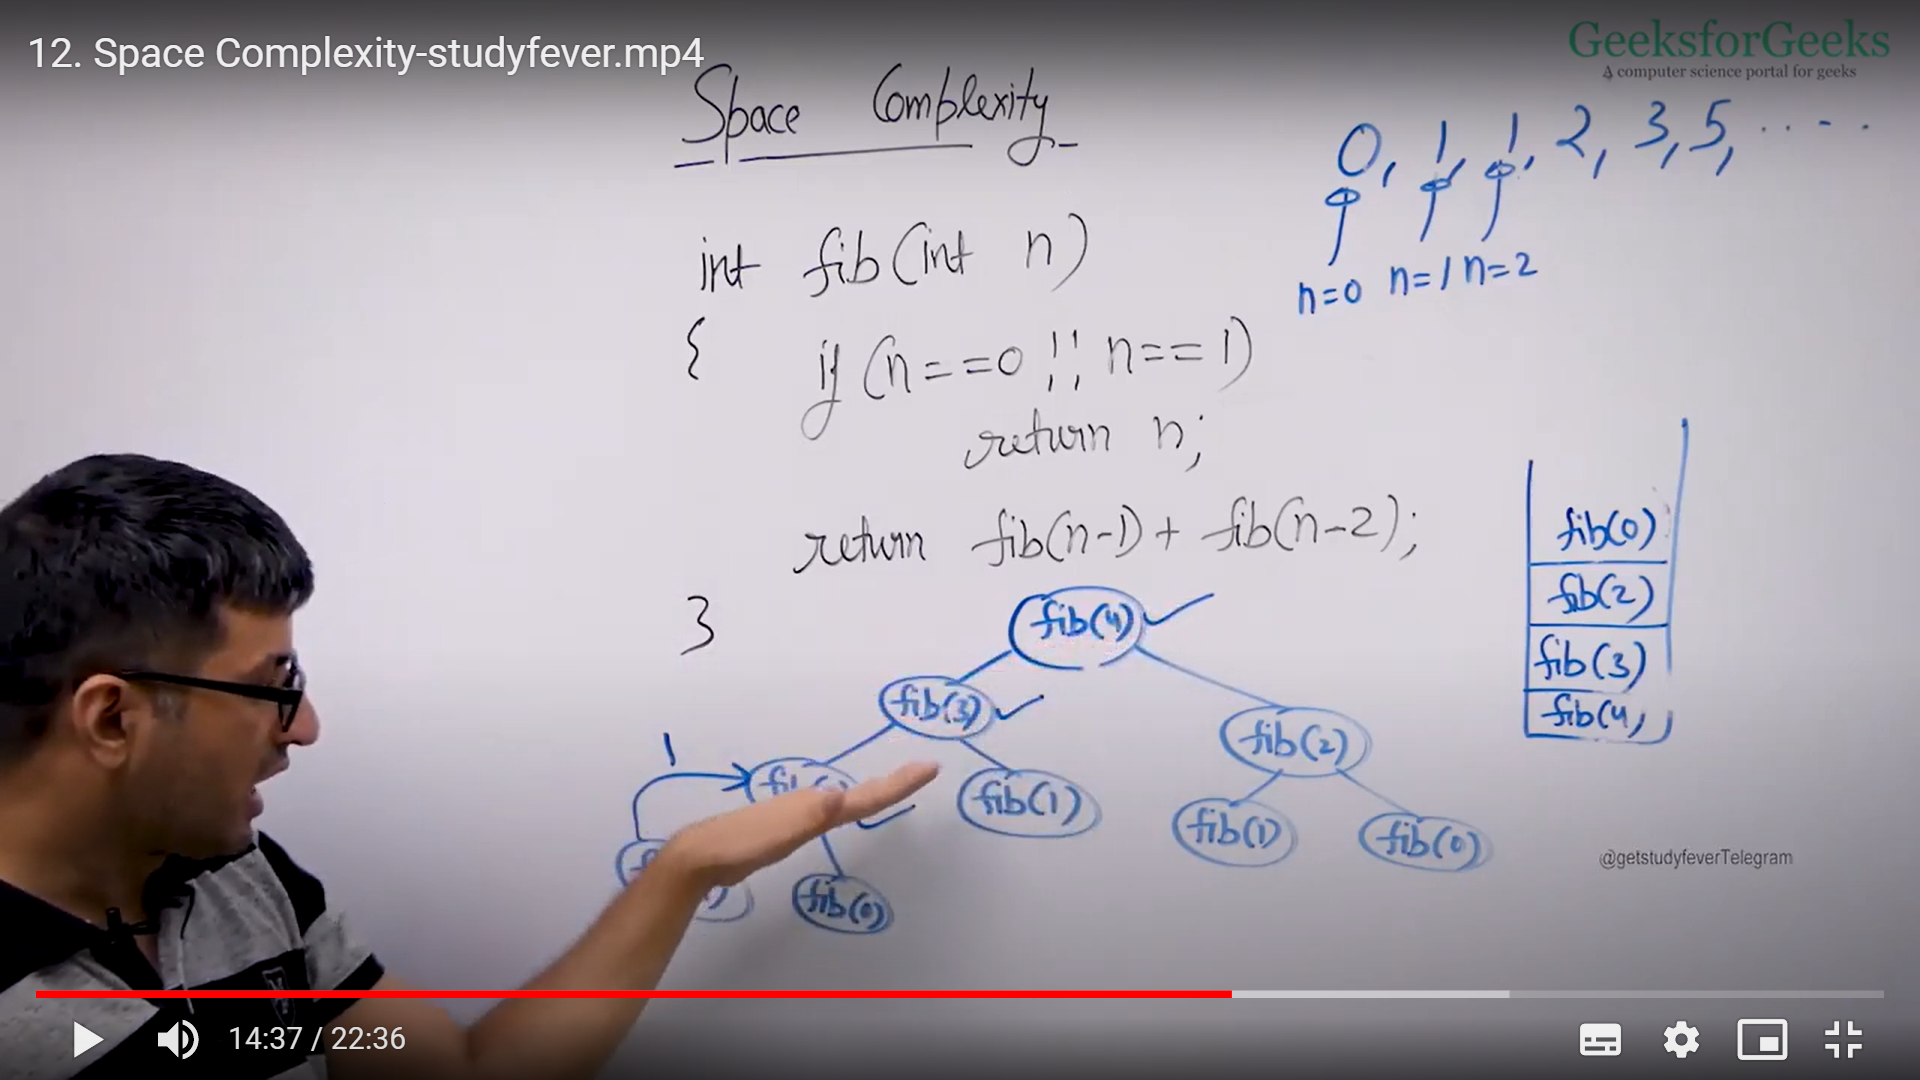 12. Space Complexity-studyfever.mp4
GeeksforGeeks
A computer science portal for geeks
Space Complexity
0, 1, 1, 2, 3, 5, ....
n=0 n=1 n=2
int fib(int n)
{
if (n==0 || n==1)
return n;
return fib(n-1) + fib(n-2);
}
fib(4)
fib(3)
fib(2)
1
fib(1)
fib(1)
fib(0)
fib(0)
fib(0)
fib(2)
fib(3)
fib(4)
@getstudyfeverTelegram
14:37 / 22:36